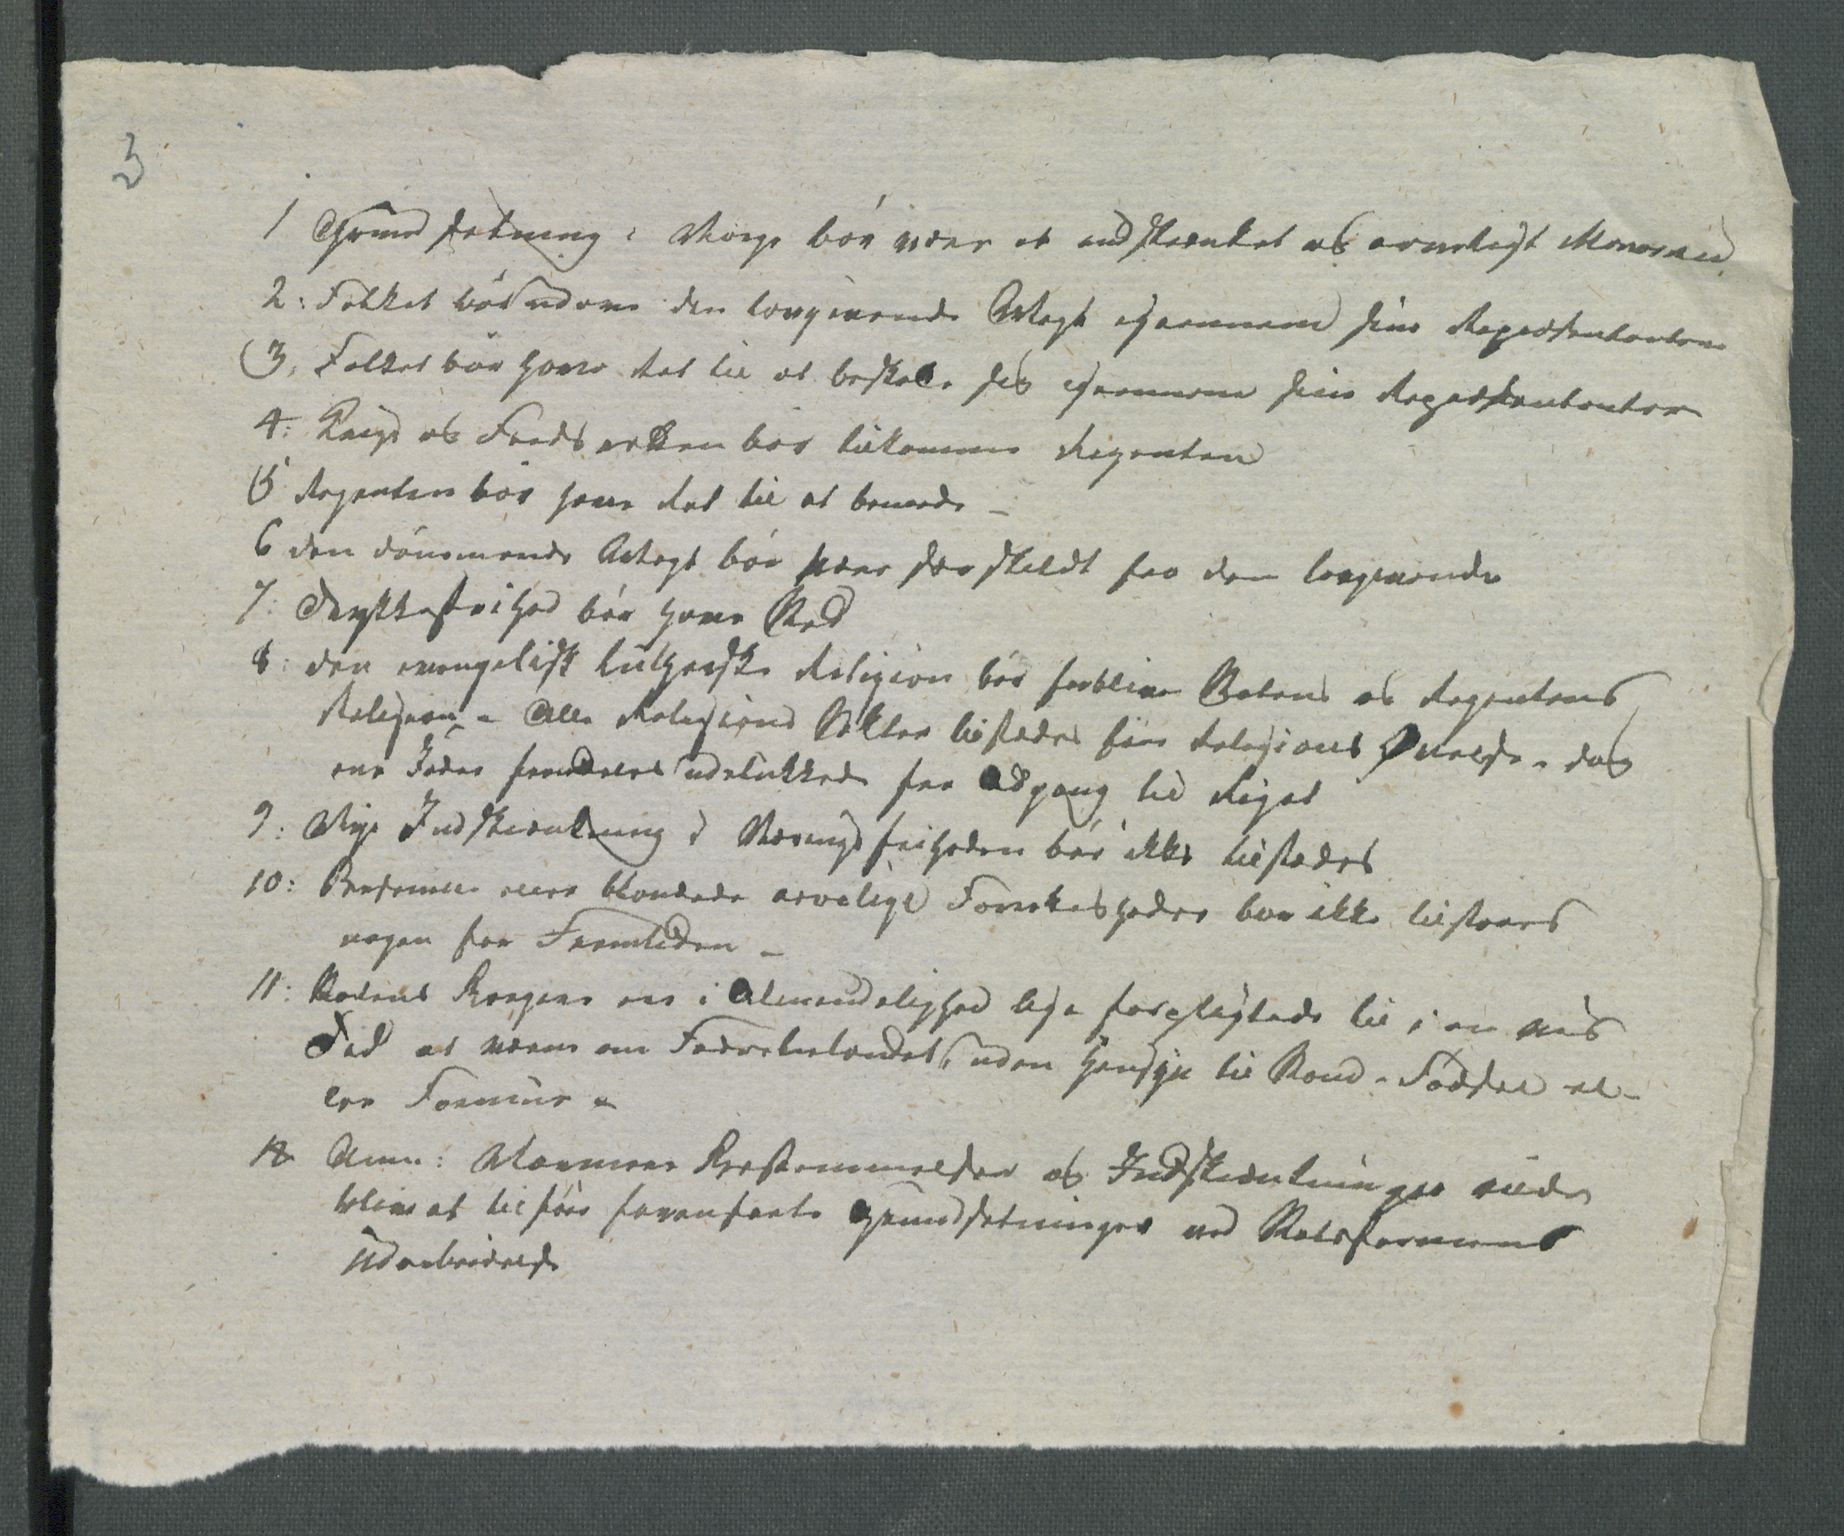 3
1 Grundsetning: Norge bör være et indskrænket og arveligt Monarkie
2: Folket bör udöve den lovgivende Magt igiennem sine Repræsentanter
3, Folket bör have Ret til at beskate sig igiennem sine Repræsentanter
4: Krigs og Freds retten bör tilkomme Regenten
5 Regenten bör have Ret til at benaade –
6 den dömmende Magt bör være særskildt fra den lovgivende
7: Trykkefrihed bör have Sted
8: den evangelisk lutherske Religion bör forblive Statens og Regentens
Religion – Alle Religions Sekter tilstædes frie Religions Øvelse – dog
ere Jöder fremdeles udelukkede fra Adgang til Riget
9: Nye Indskrænkning i Næringsfriheden bör ikke tilstædes
10: Personelle eller blandede arvelige Forrettigheder bör ikke tilstaaes
nogen for Fremtiden –
11: Statens Borgere ere i Almindelighed lige forpligtede til i en vis
Tid at værne om Fædrelandet, uden Hensyn til Stand – Födsel el-
ler Formue –
12 Anm: Nærmere Bestemmelser og Indskrænkninger ville
blive at tilföie foranförte Grundsetninger ved Statsformens
Udarbeidelse